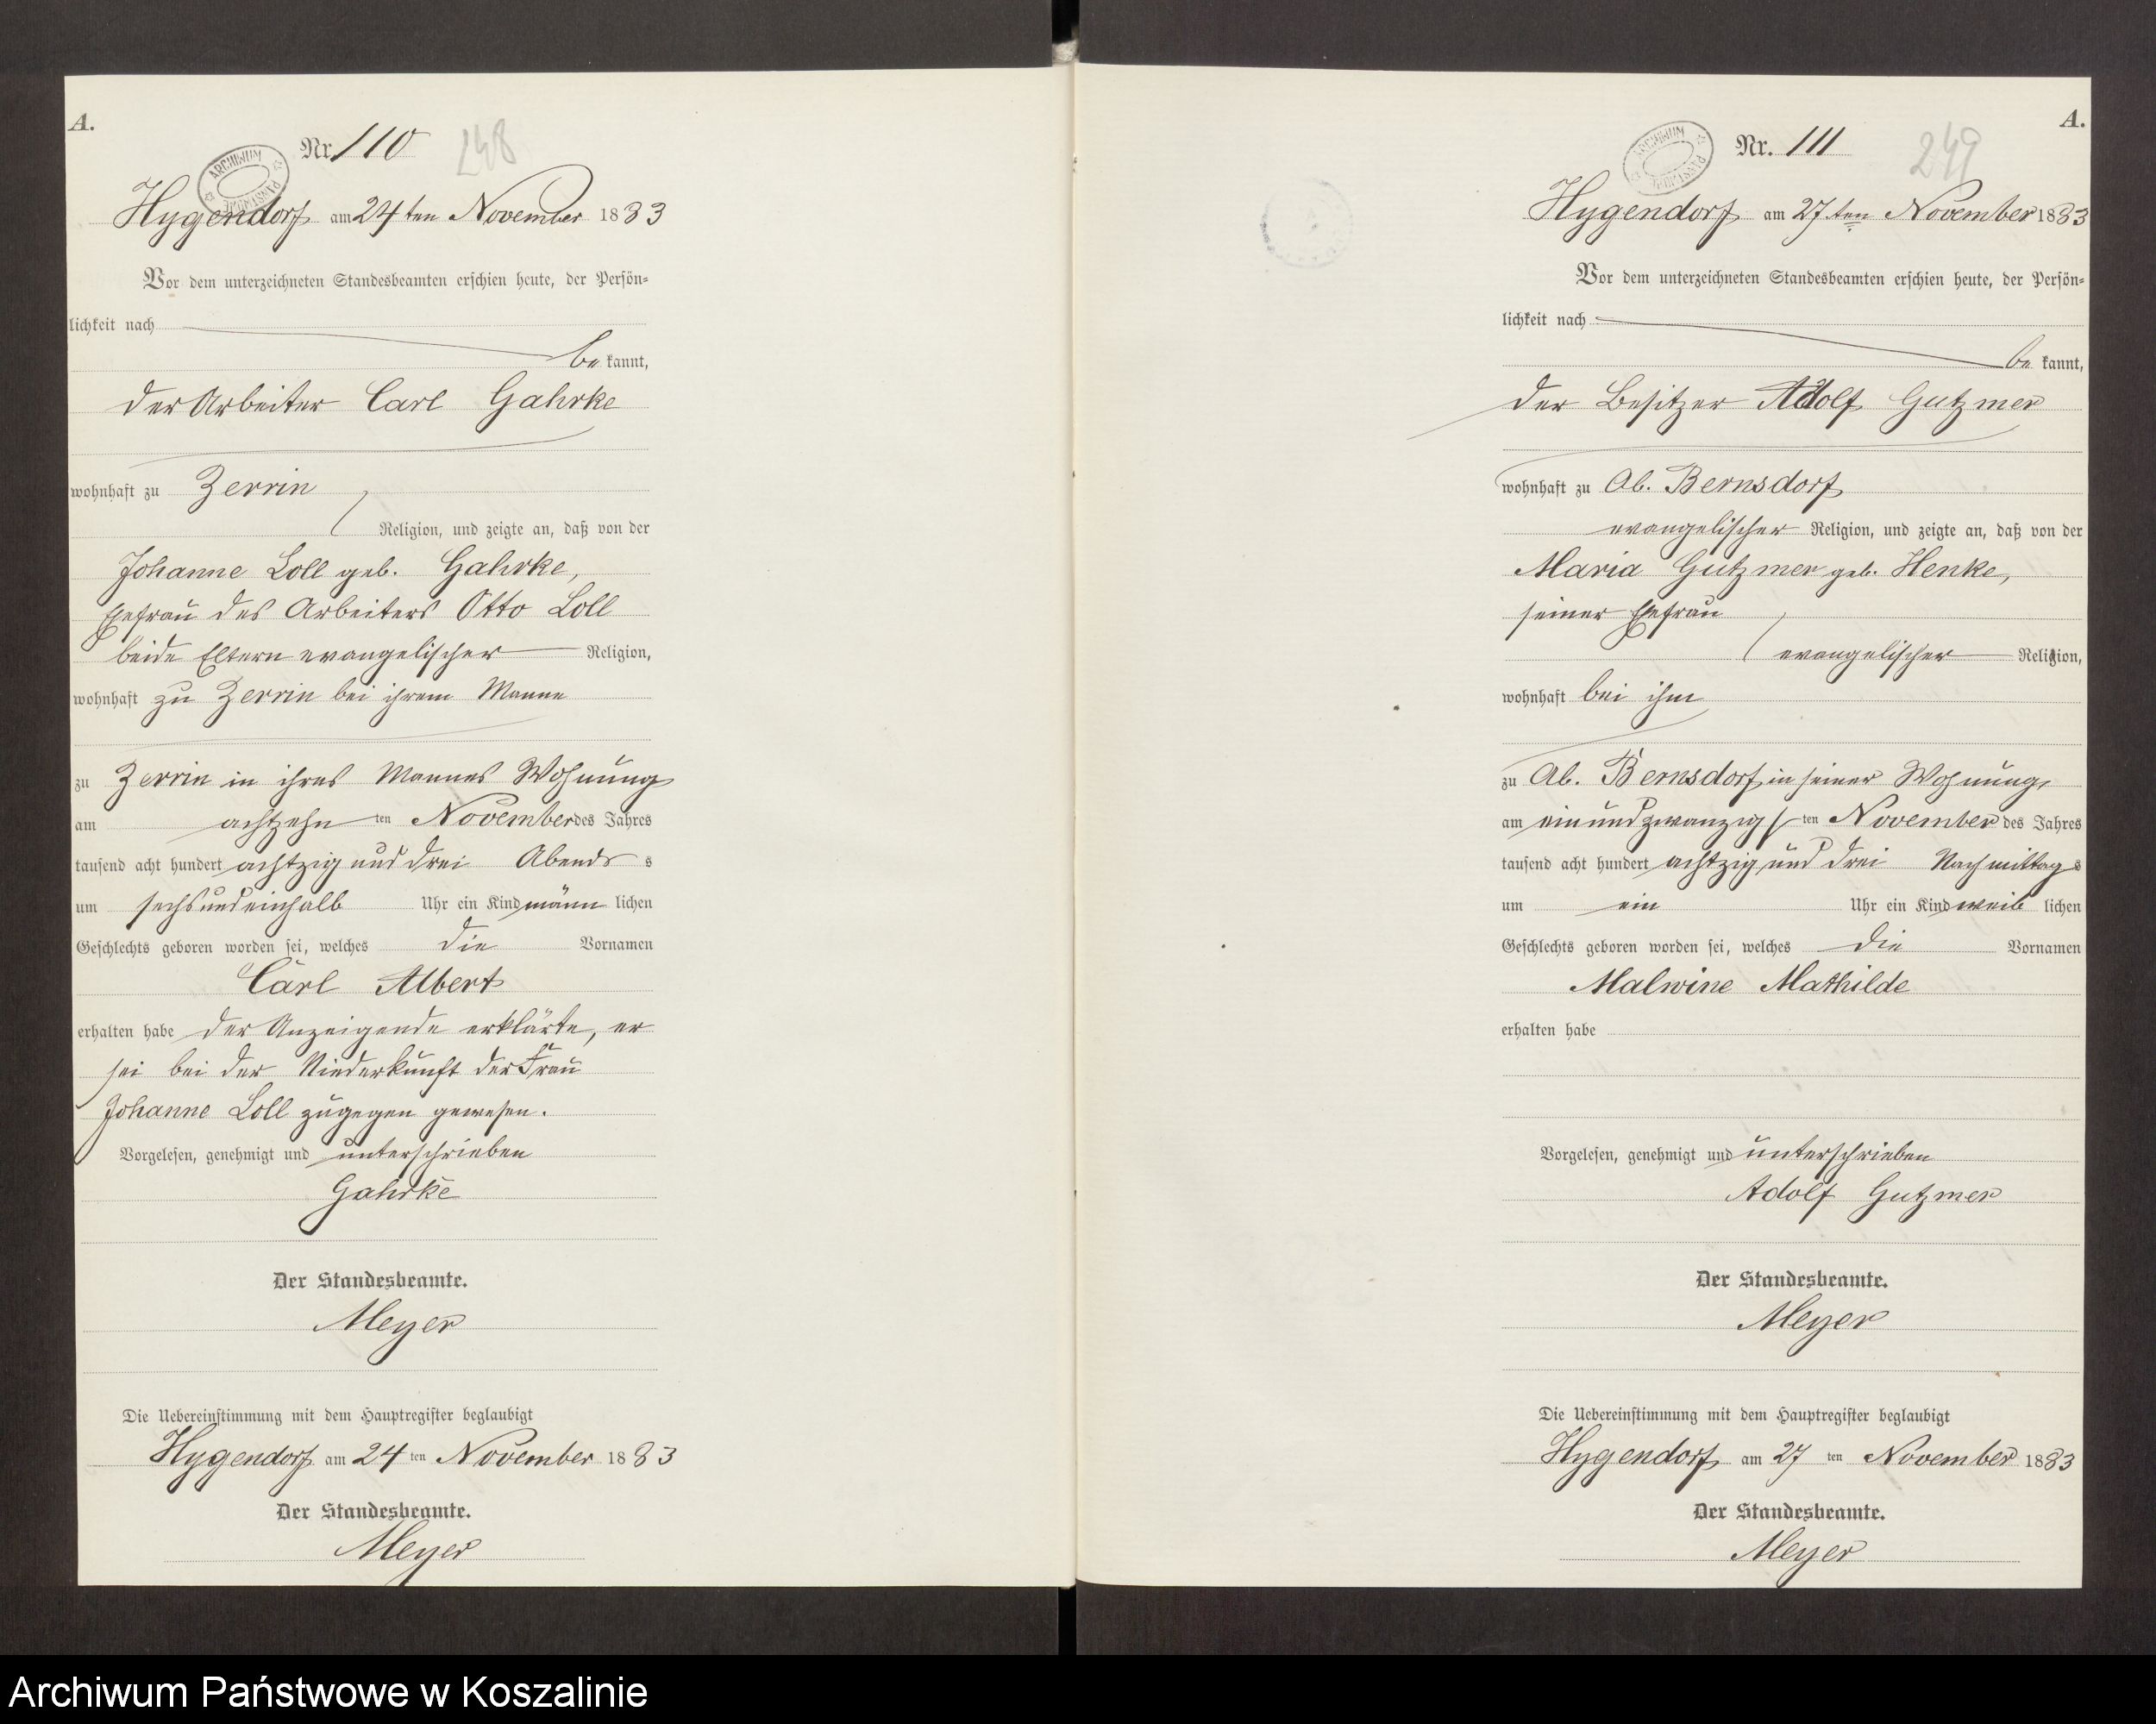 A.
Nr. 110 248
ARCHIWUM PAŃSTWOWE
Hygendorf am 24ten November 1883
Vor dem unterzeichneten Standesbeamten erschien heute, der Persön-
lichkeit nach
be kannt,
der Arbeiter Carl Gahrke
wohnhaft zu Zerrin
Religion, und zeigte an, daß von der
Johanne Loll geb. Gahrke,
Ehefrau des Arbeiters Otto Loll
beide Eltern evangelischer Religion,
wohnhaft zu Zerrin bei ihrem Manne
zu Zerrin in ihres Mannes Wohnung
am achtzehn ten November des Jahres
tausend acht hundert achtzig und drei Abends s
um sechs und einhalb Uhr ein Kind männ lichen
Geschlechts geboren worden sei, welches die Vornamen
Carl Albert
erhalten habe der Anzeigende erklärte, er
sei bei der Niederkunft der Frau
Johanne Loll zugegen gewesen.
Vorgelesen, genehmigt und unterschrieben
Gahrke
Der Standesbeamte.
Meyer
Die Uebereinstimmung mit dem Hauptregister beglaubigt
Hygendorf am 24 ten November 1883
Der Standesbeamte.
Meyer
A.
Nr. 111 249
ARCHIWUM PAŃSTWOWE
Hygendorf am 27ten November 1883
Vor dem unterzeichneten Standesbeamten erschien heute, der Persön-
lichkeit nach
be kannt,
der Besitzer Adolf Gutzmer
wohnhaft zu Ab. Bernsdorf
evangelischer Religion, und zeigte an, daß von der
Maria Gutzmer geb. Henke,
seiner Ehefrau
evangelischer Religion,
wohnhaft bei ihm
zu Ab. Bernsdorf in seiner Wohnung,
am ein und zwanzig ten November des Jahres
tausend acht hundert achtzig und drei Nachmittag s
um ein Uhr ein Kind weib lichen
Geschlechts geboren worden sei, welches die Vornamen
Malwine Mathilde
erhalten habe
Vorgelesen, genehmigt und unterschrieben
Adolf Gutzmer
Der Standesbeamte.
Meyer
Die Uebereinstimmung mit dem Hauptregister beglaubigt
Hygendorf am 27 ten November 1883
Der Standesbeamte.
Meyer
Archiwum Państwowe w Koszalinie